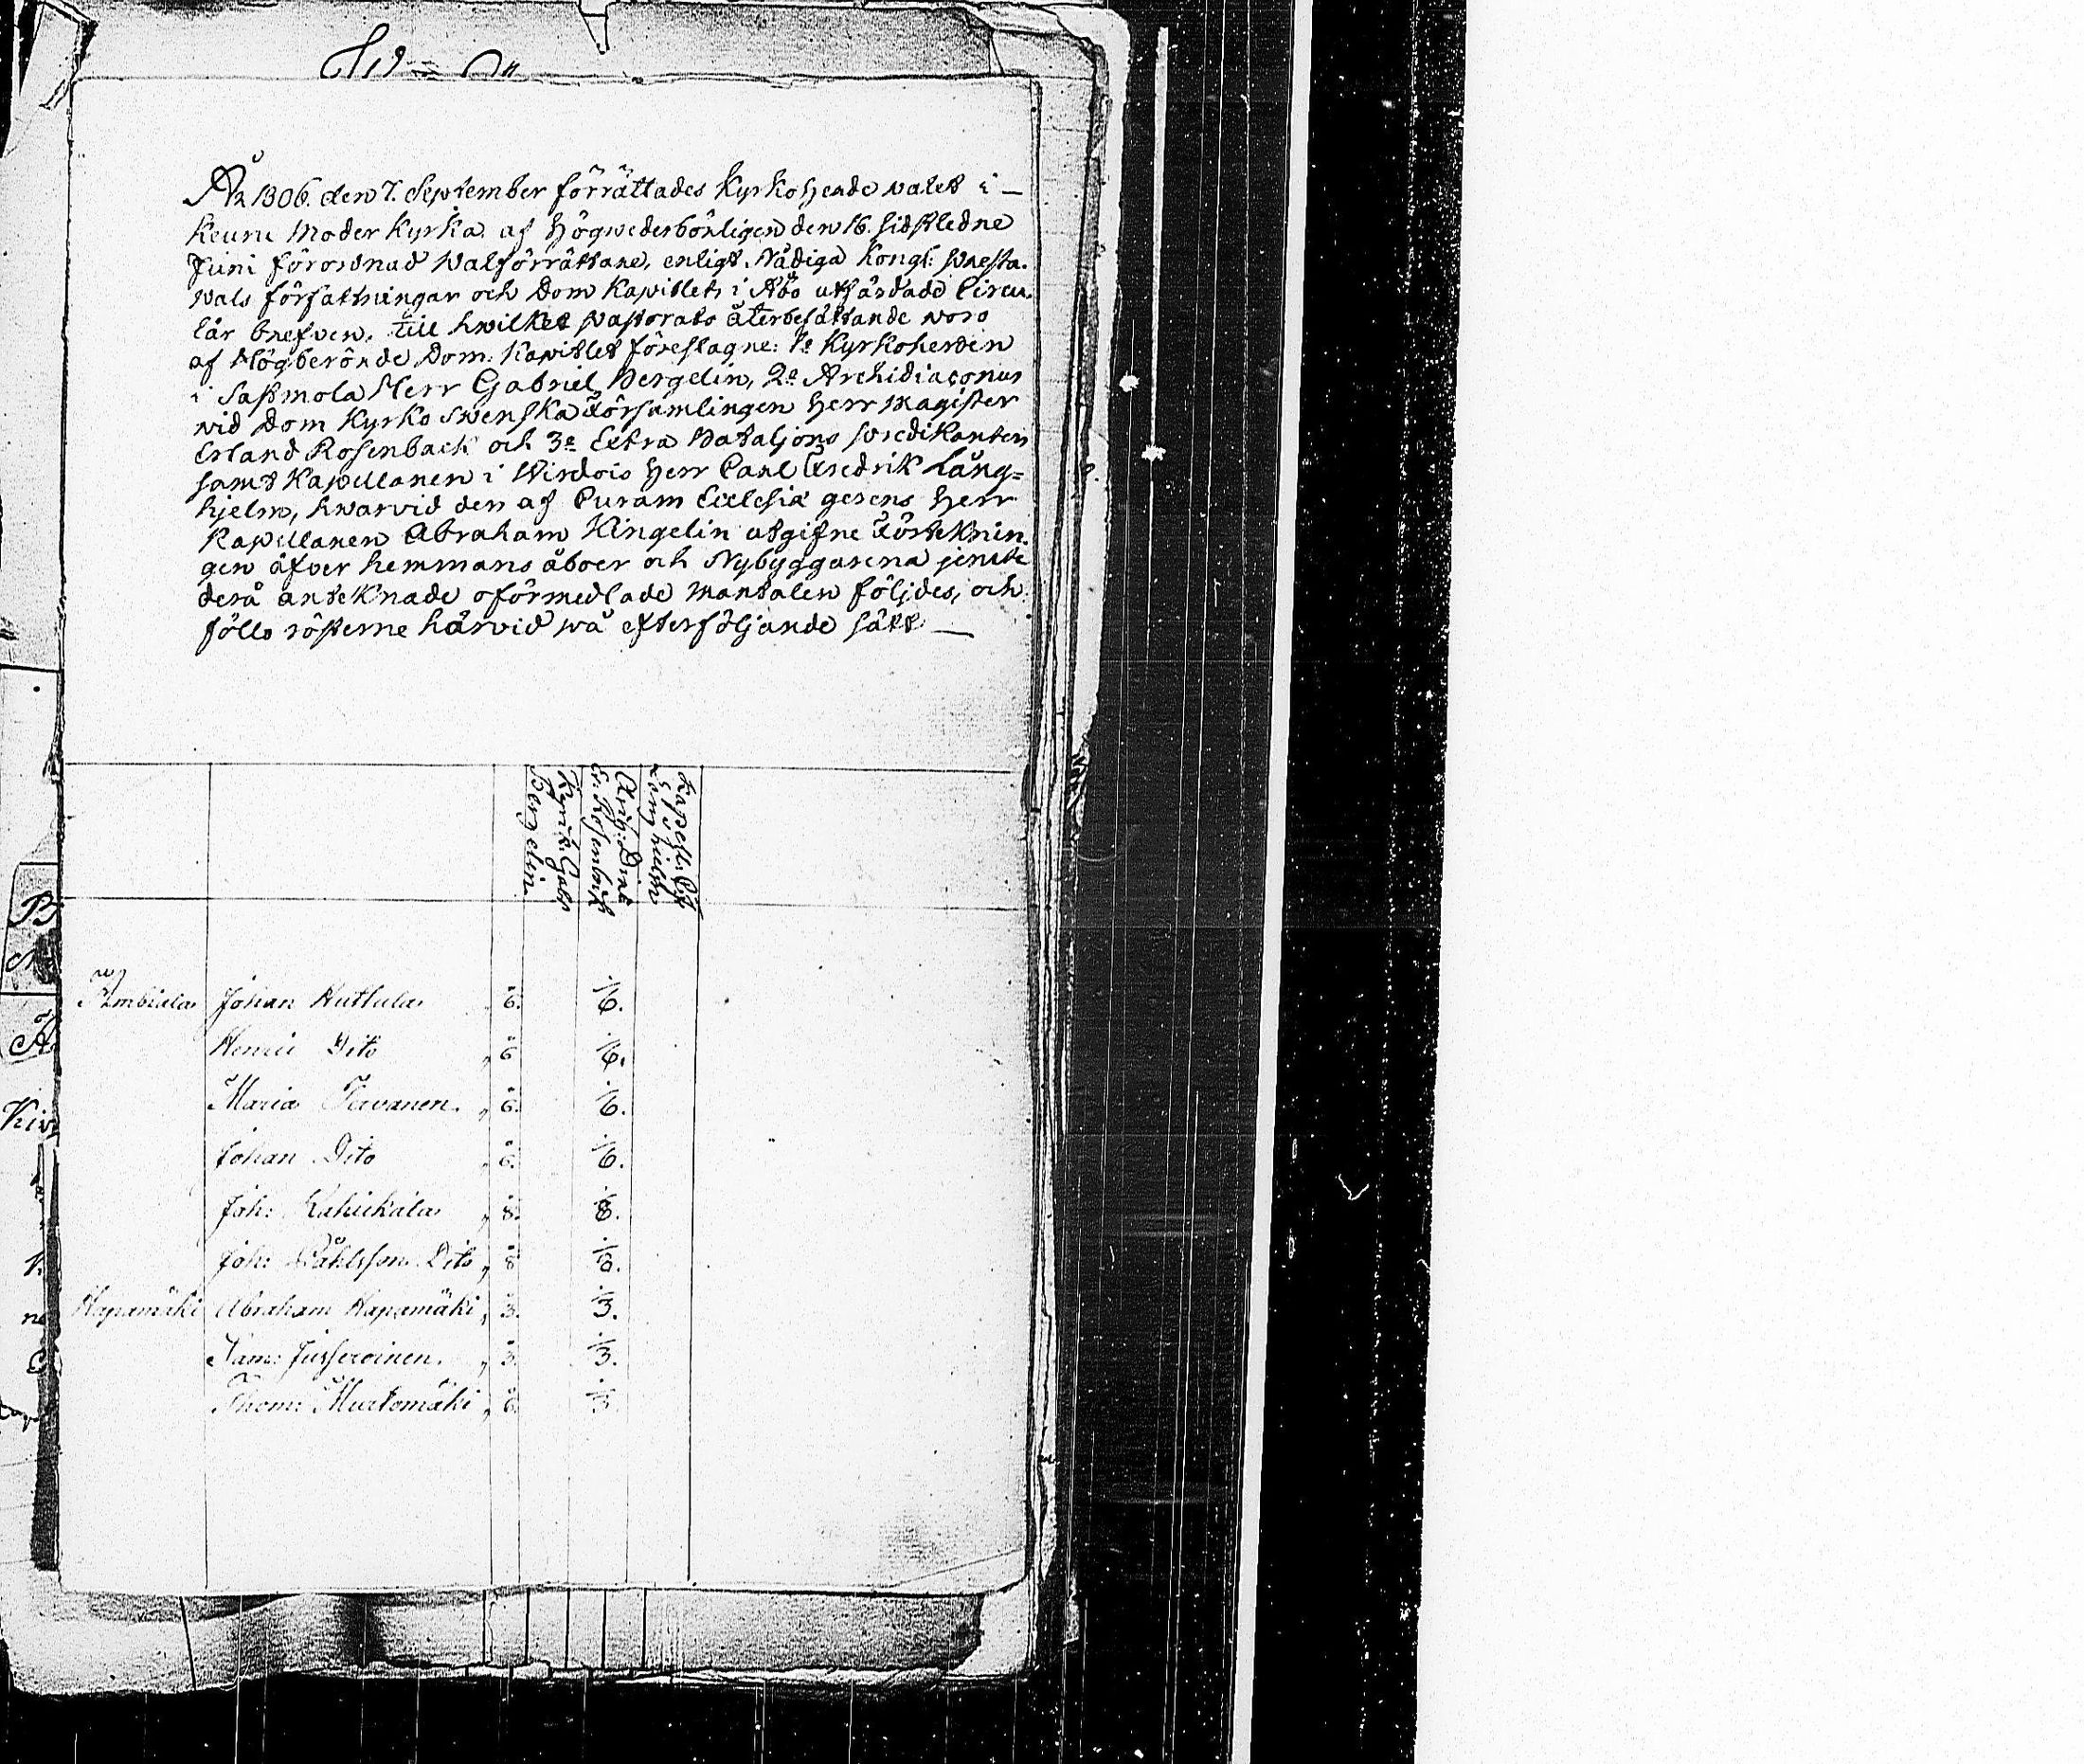 År 1806. den 7. September förrättades Kyrkoherde valet i
Keuru Moder Kyrka af Högwederbörligen den 16. sidstledne
Juni förordnad Valförrättare, enligt Nådiga Kongl: Presta-
vals författningar och Dom Kapitlets i Åbo utfärdade Circu-
lär brefven, till hwilket Pastorats återbesättande voro
af Högberörde Dom: Kapitlet föreslagne: 1o Kyrkoherden
i Saßmola Herr Gabriel Bergelin, 2o Archidiaconus
vid Dom Kyrko Swenska Församlingen Herr Magister
Erland Rosenback och 3o Extra Bataljons Predikanten
samt Kapellanen i Wirdois Herr Carl Fredrik Lång=
hjelm, hwarvid den af Curam Ecclesiæ gerens Herr
Kapellanen Abraham Kingelin utgifne Förteknin-
gen öfver hemmans åboer och Nybyggarena jemte
derå anteknade oförmedlade Mantalen följdes, och
föllo rösterne härvid på efterföljande sätt
Kyrkh. Gabr
Bergelin
Arch: Diac
Er: Rosenback
Kapell: C F
Långhielm
Ämbiala Johan Huttula 6. 1/6.
Henric Dito 6 1/6.
Maria Tervanen. 6. 1/6.
Johan Dito 6. 1/6.
Joh: Kahikala 8. 1/8.
Joh: Påhlsson Dito 8 1/8.
Hapamäki Abraham Hapamäki 3. 1/3.
Sam: Jusseroinen. 3. 1/3.
Thom: Murtomäki 1/3.